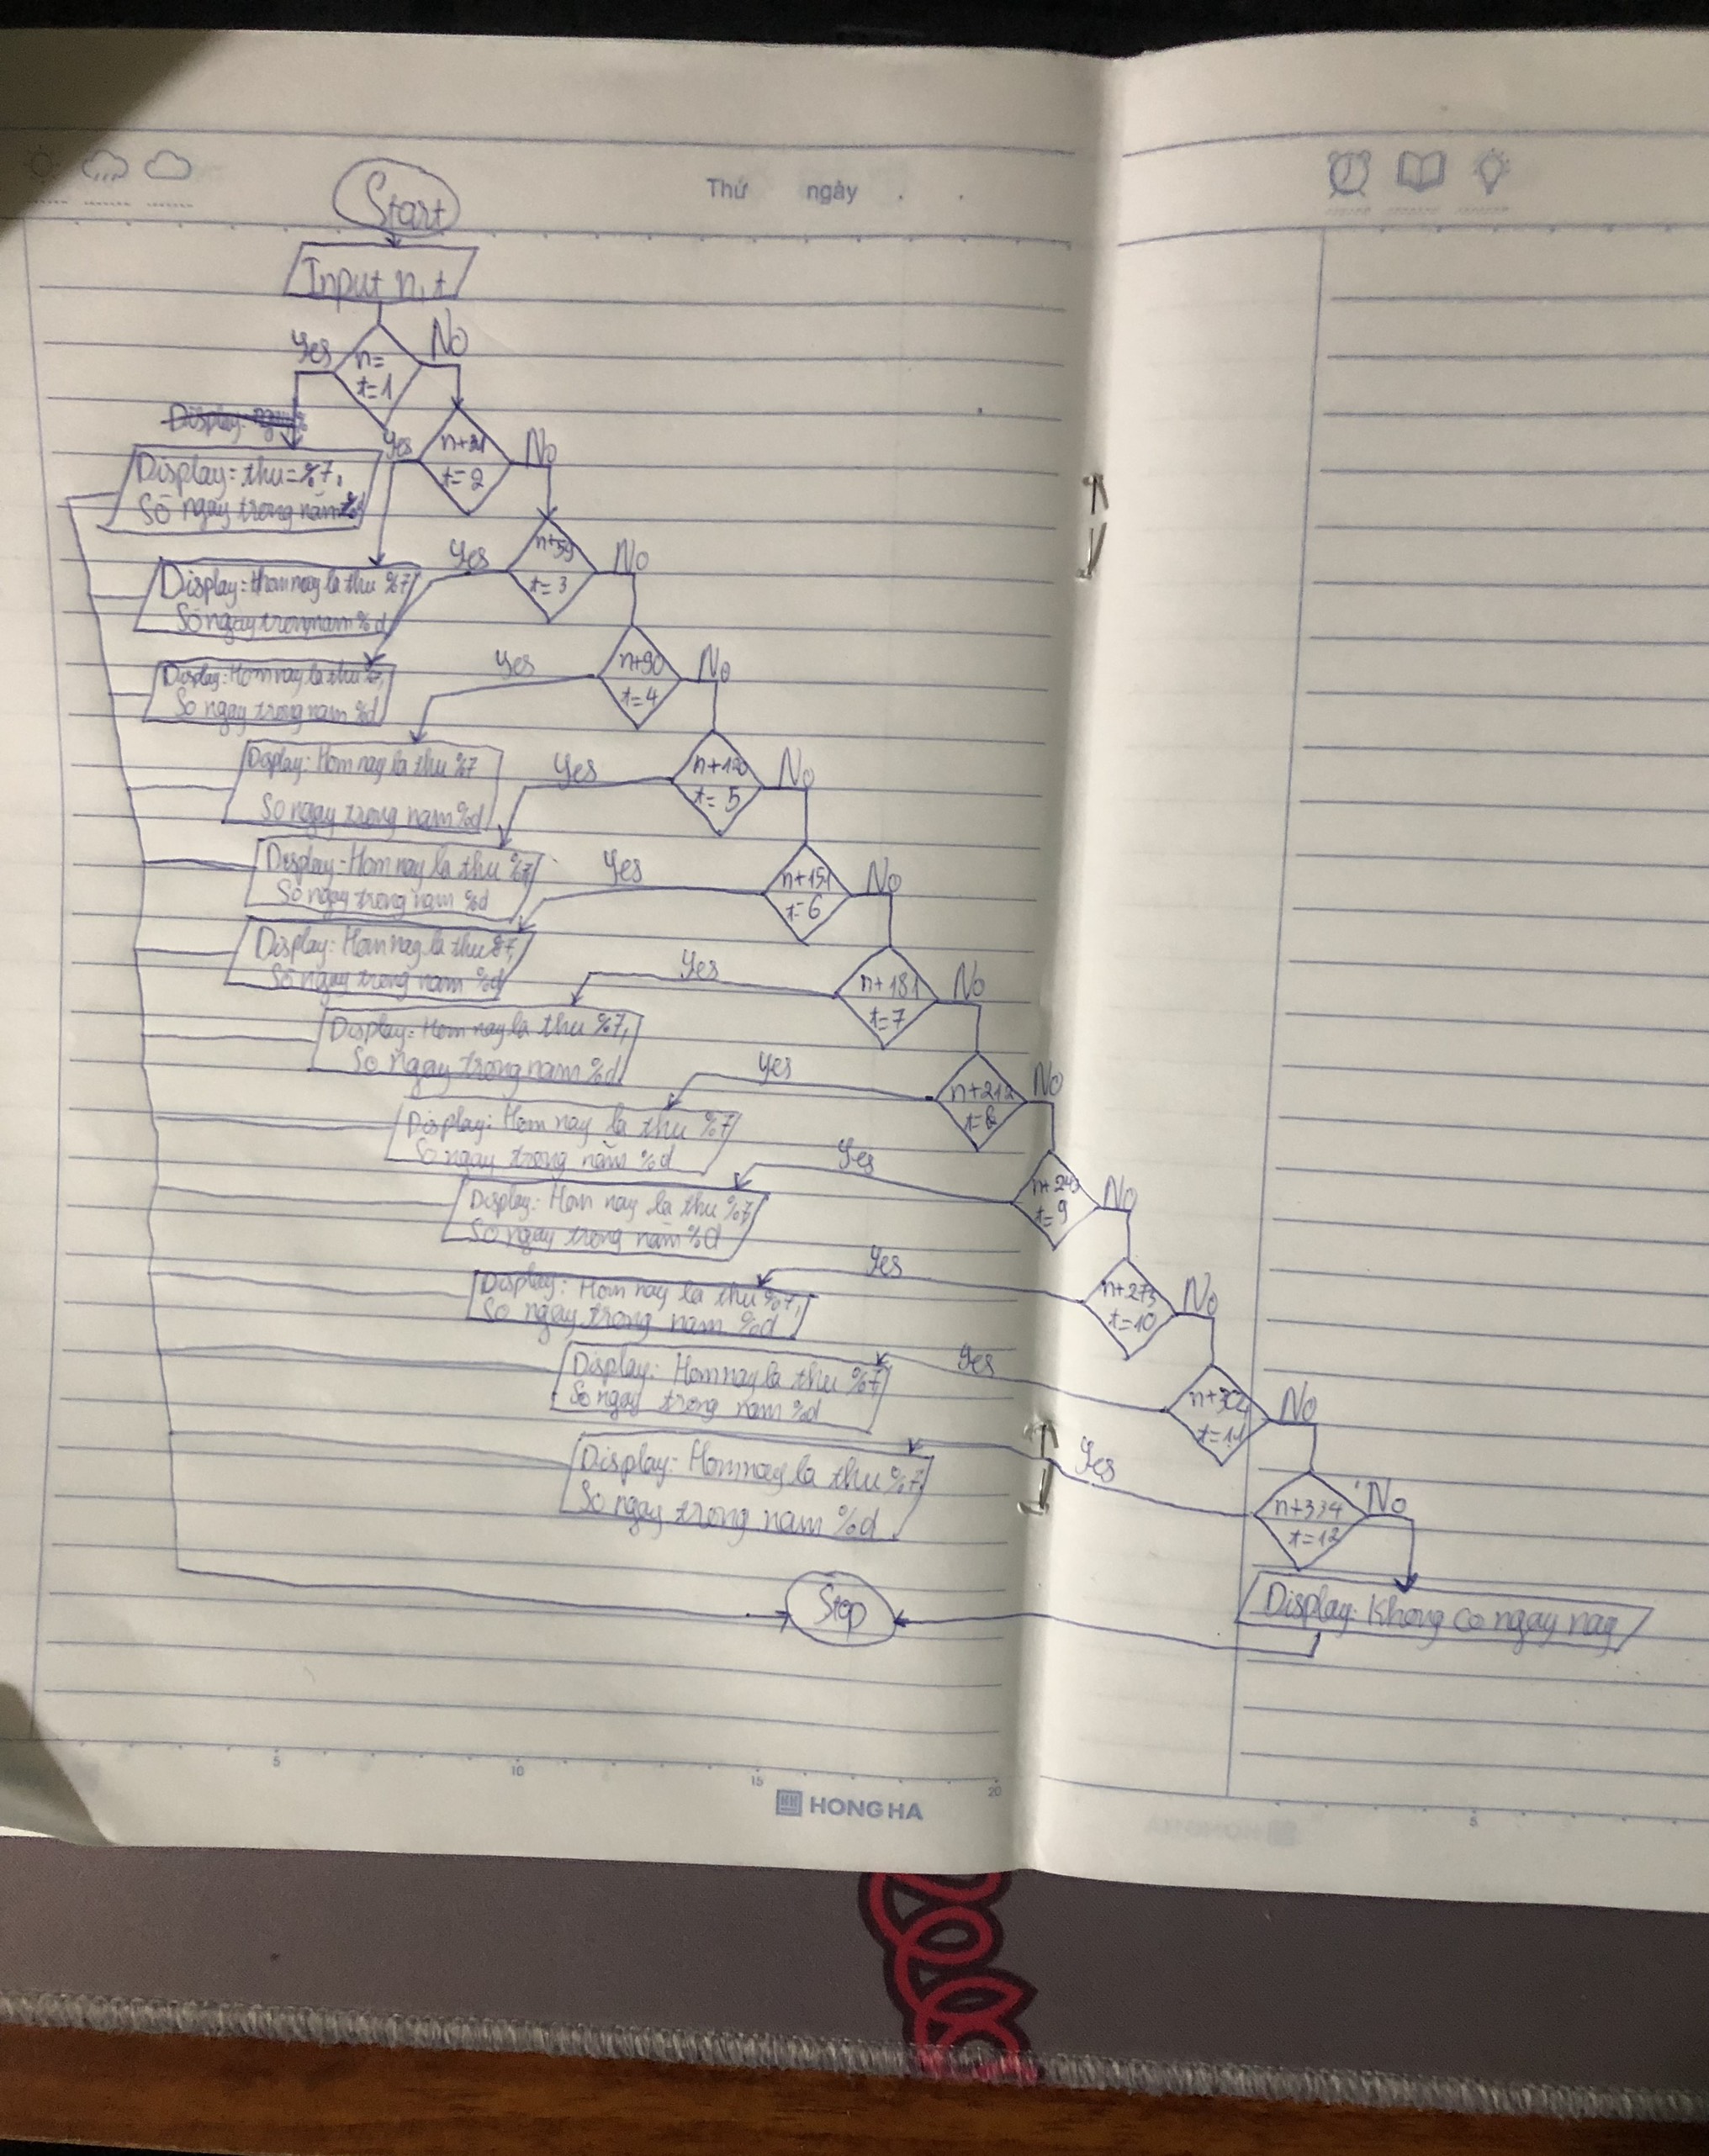 Thứ ngày
Start
Input n, t
Yes
No
n=
t=1
Display:
Yes
n+31
t=2
No
Display=thu=%7,
Số ngay trong năm %d
Yes
n+59
t=3
No
Display=Homnay la thu %7
Số ngay trong nam %d
Yes
n+90
t=4
No
Display: Hom nay la thu %7,
So ngay trong nam %d
Yes
n+120
t=5
No
Display: Hom nay la thu %7
So ngay trong nam %d
Yes
n+151
t=6
No
Display=Hom nay la thu %7,
So ngay trong nam %d
Yes
n+181
t=7
No
Display: Hom nay la thu %7,
Số ngay trong nam %d
Yes
n+212
t=8
No
Display: Hom nay la thu %7,
So ngay trong nam %d
Yes
n+243
t=9
No
Display: Hom nay la thu %7
So ngay trong năm %d
Yes
n+273
t=10
No
Display: Hom nay la thu %7,
So ngay trong năm %d
Yes
n+304
t=11
No
Display: Hom nay la thu %7,
So ngay trong nam %d
Yes
n+334
t=12
No
Display: Hom nay la thu %7
So ngay trong nam %d
Display: Homnay la thu %7
So ngay trong nam %d
Stop
Display: Khong co ngay nay
5 10 15 20
HONG HA
5